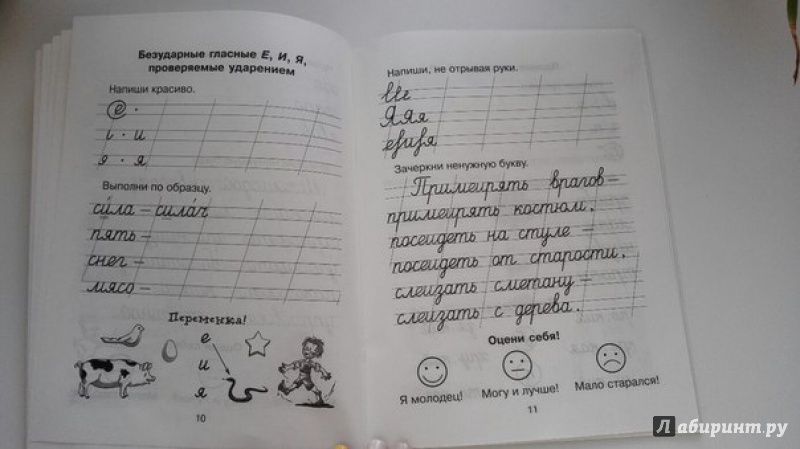 Безударные гласные Е, И, Я,
проверяемые ударением
Напиши красиво.
е ·
и · и
я · я
Выполни по образцу.
си́ла – сила́ч
пять –
снег –
мясо –
Переменка!
е
и
я
10
Напиши, не отрывая руки.
Яяя
еиея
Зачеркни ненужную букву.
Примеирять врагов –
примеирять костюм,
посеидеть на стуле –
посеидеть от старости,
слеизать сметану –
слеизать с дерева.
Оцени себя!
Я молодец!
Могу и лучше!
Мало старался!
11
Лабиринт.ру